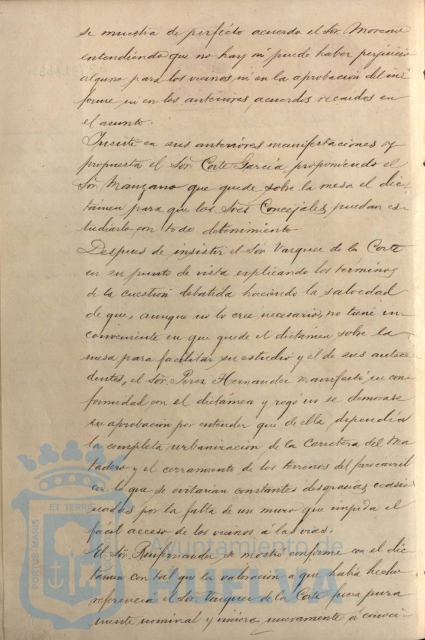 se muestra de perfecto acuerdo el Sor. Moreno
entendiendo que no hay ni puede haber perjuicio
alguno para los vecinos ni en la aprobacion del in-
forme ni en los anteriores acuerdos recaidos en
el asunto.
Insiste en sus anteriores manifestaciones y
propuesta el Sor. Corte Garcia proponiendo el
Sor. Manzano que quede sobre la mesa el dic-
támen para que los Sres. Concejales puedan es-
tudiarlo con todo detenimiento
Despues de insistir el Sor. Vazquez de la Corte
en su punto de vista explicando los terminos
de la cuestión debatida haciendo la salvedad
de que, aunque no lo cree necesario, no tiene in-
conveniente en que quede el dictámen sobre la
mesa para facilitar su estudio y el de sus antece-
dentes, el Sor. Perez Hernandez manifestó su con-
formidad con el dictámen y rogó no se demorase
su aprobacion por entender que de ella dependía
la completa urbanizacion de la Carretera del Ma-
tadero y el cerramiento de los terrenos del ferrocarril
con lo que se evitarian constantes desgracias ocasio-
nadas por la falta de un muro que impida el
fácil acceso de los vecinos á las vias.
El Sor. se mostró conforme con el dic-
támen con tal que la valoracion a que habia hecho
referencia el Sor. Vazquez de la Corte fuera pura-
mente nominal y
PORTUS MARIS ET TERRE
Ayuntamiento de
HUELVA